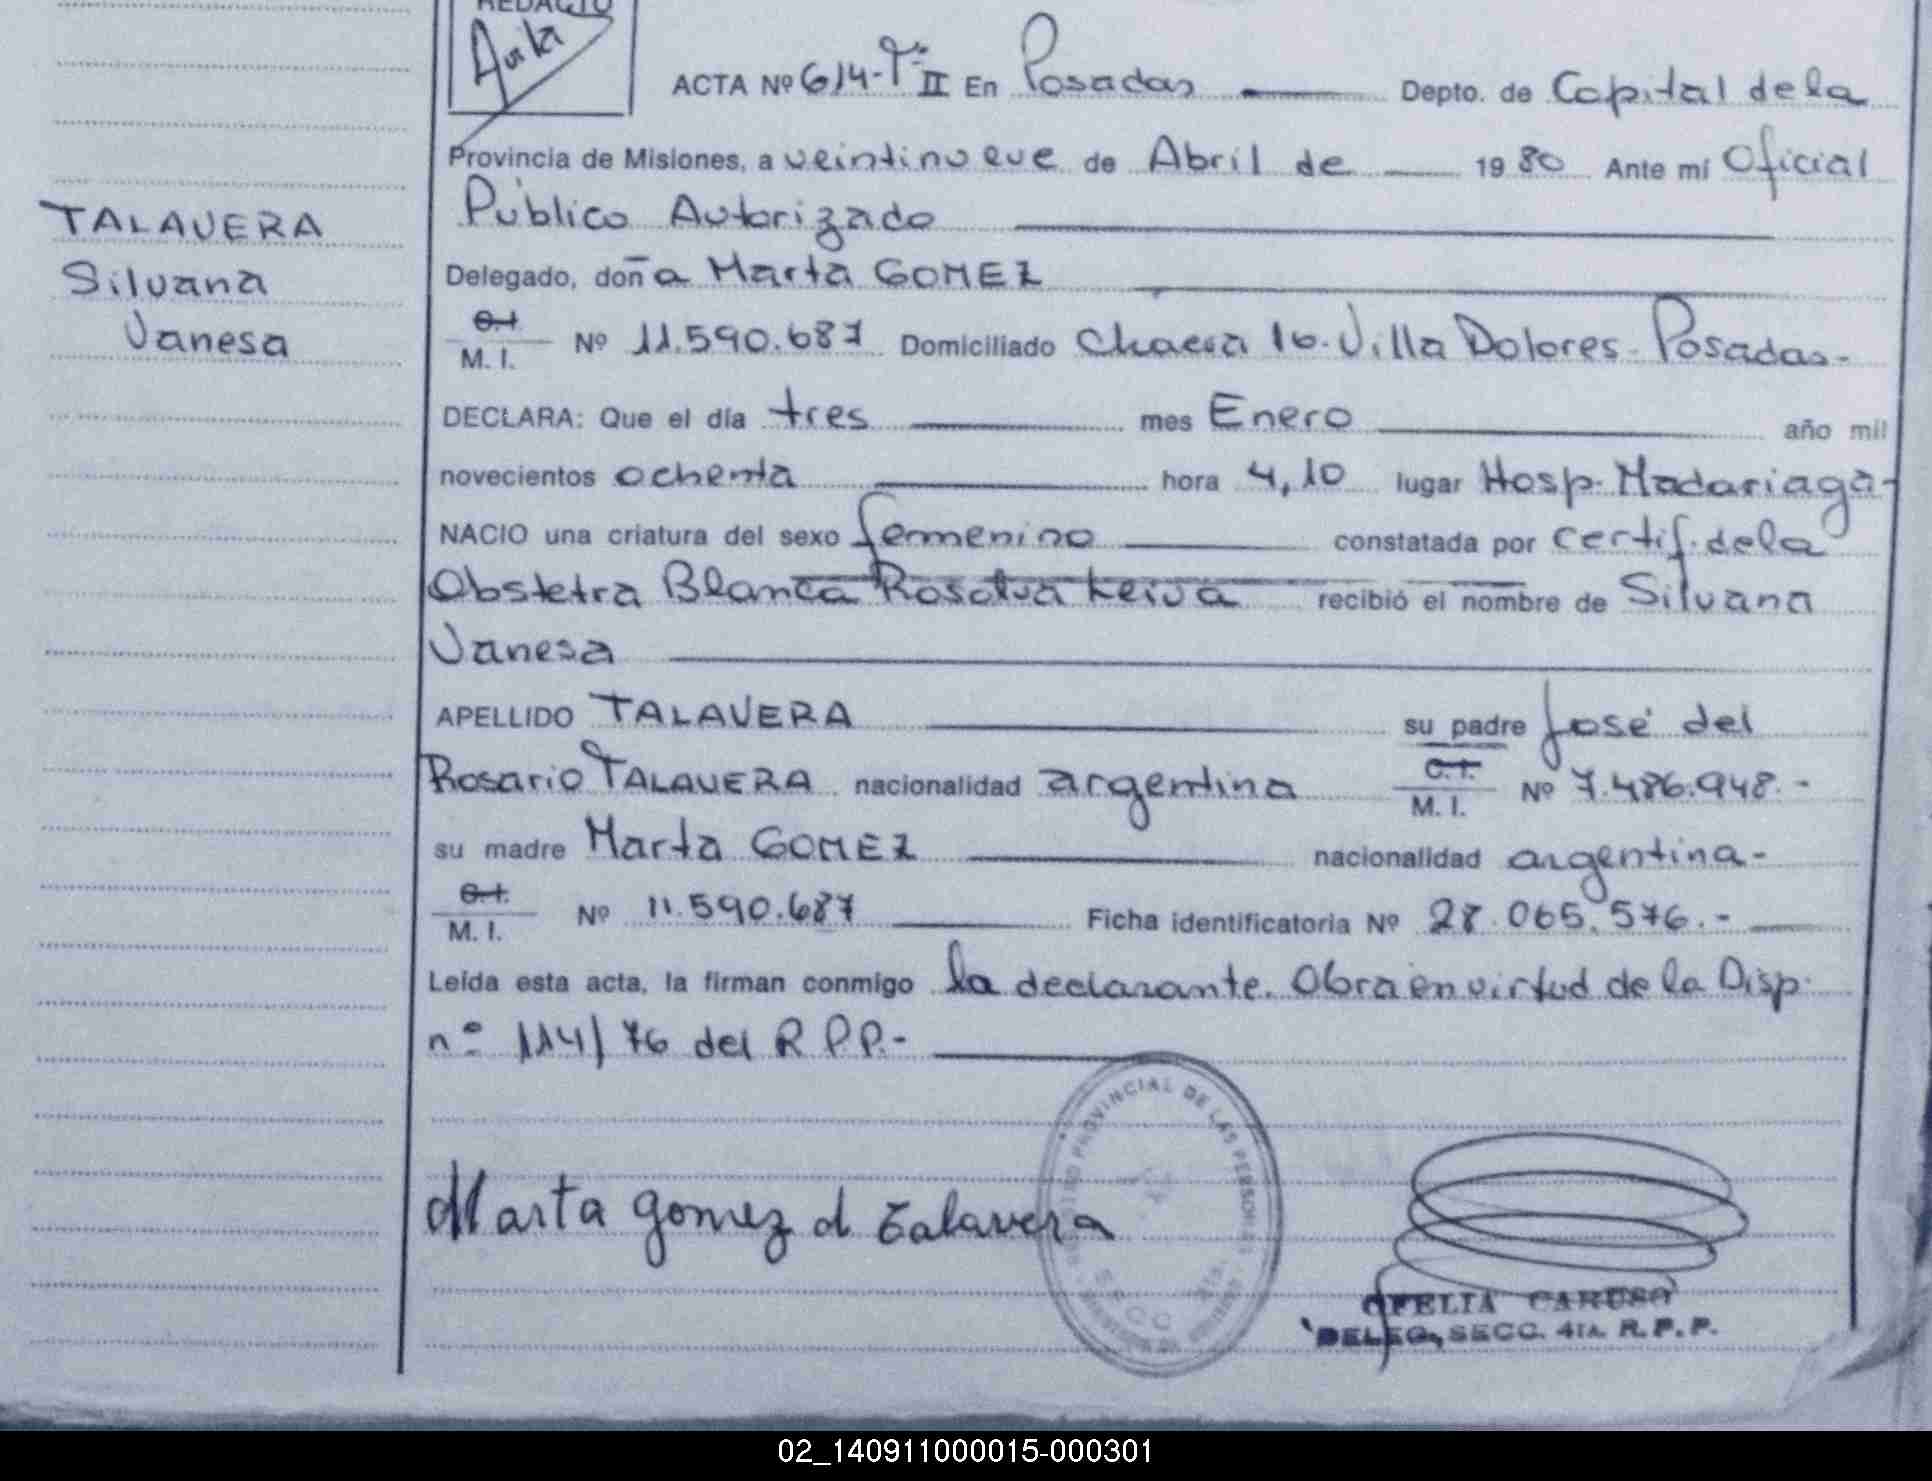 REDACTO
Avila
ACTA Nº 614-Tº II En Posadas Depto. de Capital de la
Provincia de Misiones, a veintinueve de Abril de 1980 Ante mí Oficial
Público Autorizado
TALAVERA
Silvana
Vanesa
Delegado, doña Marta GOMEZ
C.I.
M. I. Nº 11.590.687 Domiciliado Chacra 16. Villa Dolores - Posadas-
DECLARA: Que el día tres mes Enero año mil
novecientos ochenta hora 4,10 lugar Hosp. Madariaga-
NACIO una criatura del sexo femenino constatada por certif. de la
Obstetra Blanca Rosalva Leiva recibió el nombre de Silvana
Vanesa
APELLIDO TALAVERA su padre José del
Rosario TALAVERA nacionalidad argentina C.I.
M. I. Nº 7.486.948.-
su madre Marta GOMEZ nacionalidad argentina-
C.I.
M. I. Nº 11.590.687 Ficha identificatoria Nº 28.065.576.-
Leída esta acta, la firman conmigo la declarante. Obra en virtud de la Disp.
nº 114/76 del R.P.P.-
PROVINCIAL DE LAS PERSONAS
SECC. 4ta.
Marta gomez d Talavera
OFELIA CARUSO
DELEG. SECC. 4TA. R.P.P.
02_140911000015-000301